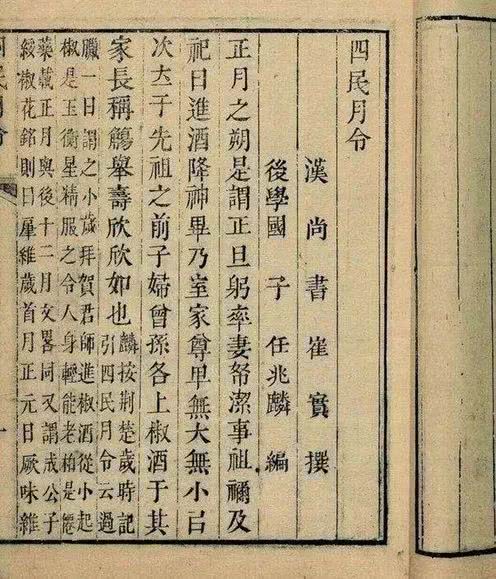 四民月令
漢尚書崔實撰
後學國子任兆麟編
正月之朔是謂正旦躬率妻帑潔事祖禰及
祀日進酒降神畢乃室家尊卑無大無小㠯
次于先祖之前子婦曾孫各上椒酒于其
家長稱觴舉壽欣欣如也
麟按荆楚歲時記
引四民月令云過
臘一日謂之小歲拜賀君師進椒酒從小起
椒是玉衡星精服之令人身輕能老柏是僊
藥載正月與後十二月文畧同又謂成公子
綏椒花銘則曰維歲首月正元日厥味維